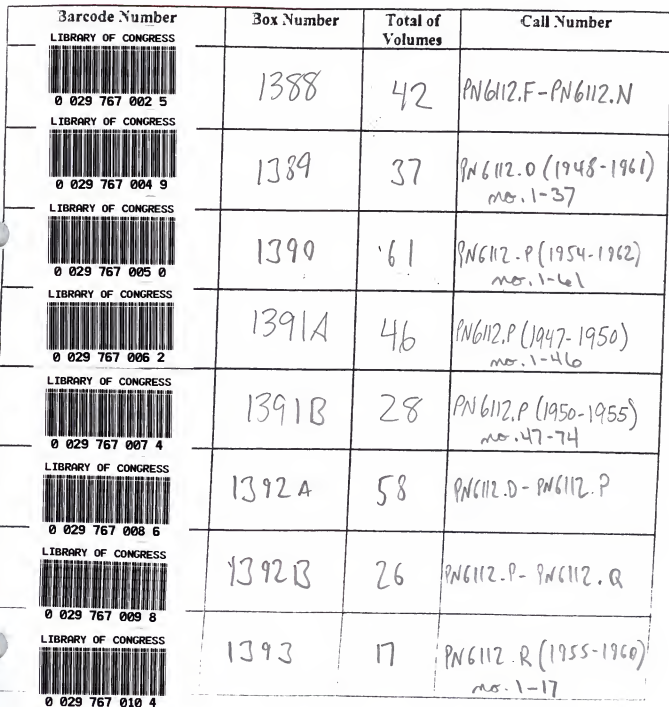 Barcode Number Box Number Total of Call Number
Volumes
LIBRARY OF CONGRESS
0 029 767 002 5
1388 42 PN6112.F-PN6112.N
LIBRARY OF CONGRESS
0 029 767 004 9
1389 37 PN6112.O (1948-1961)
no. 1-37
LIBRARY OF CONGRESS
0 029 767 005 0
1390 61 PN6112.P (1954-1962)
no. 1-61
LIBRARY OF CONGRESS
0 029 767 006 2
1391A 46 PN6112.P (1947-1950)
no. 1-46
LIBRARY OF CONGRESS
0 029 767 007 4
1391B 28 PN6112.P (1950-1955)
no. 47-74
LIBRARY OF CONGRESS
0 029 767 008 6
1392A 58 PN6112.D-PN6112.P
LIBRARY OF CONGRESS
0 029 767 009 8
1392B 26 PN6112.P-PN6112.Q
LIBRARY OF CONGRESS
0 029 767 010 4
1393 17 PN6112.R (1955-1960)
no. 1-17